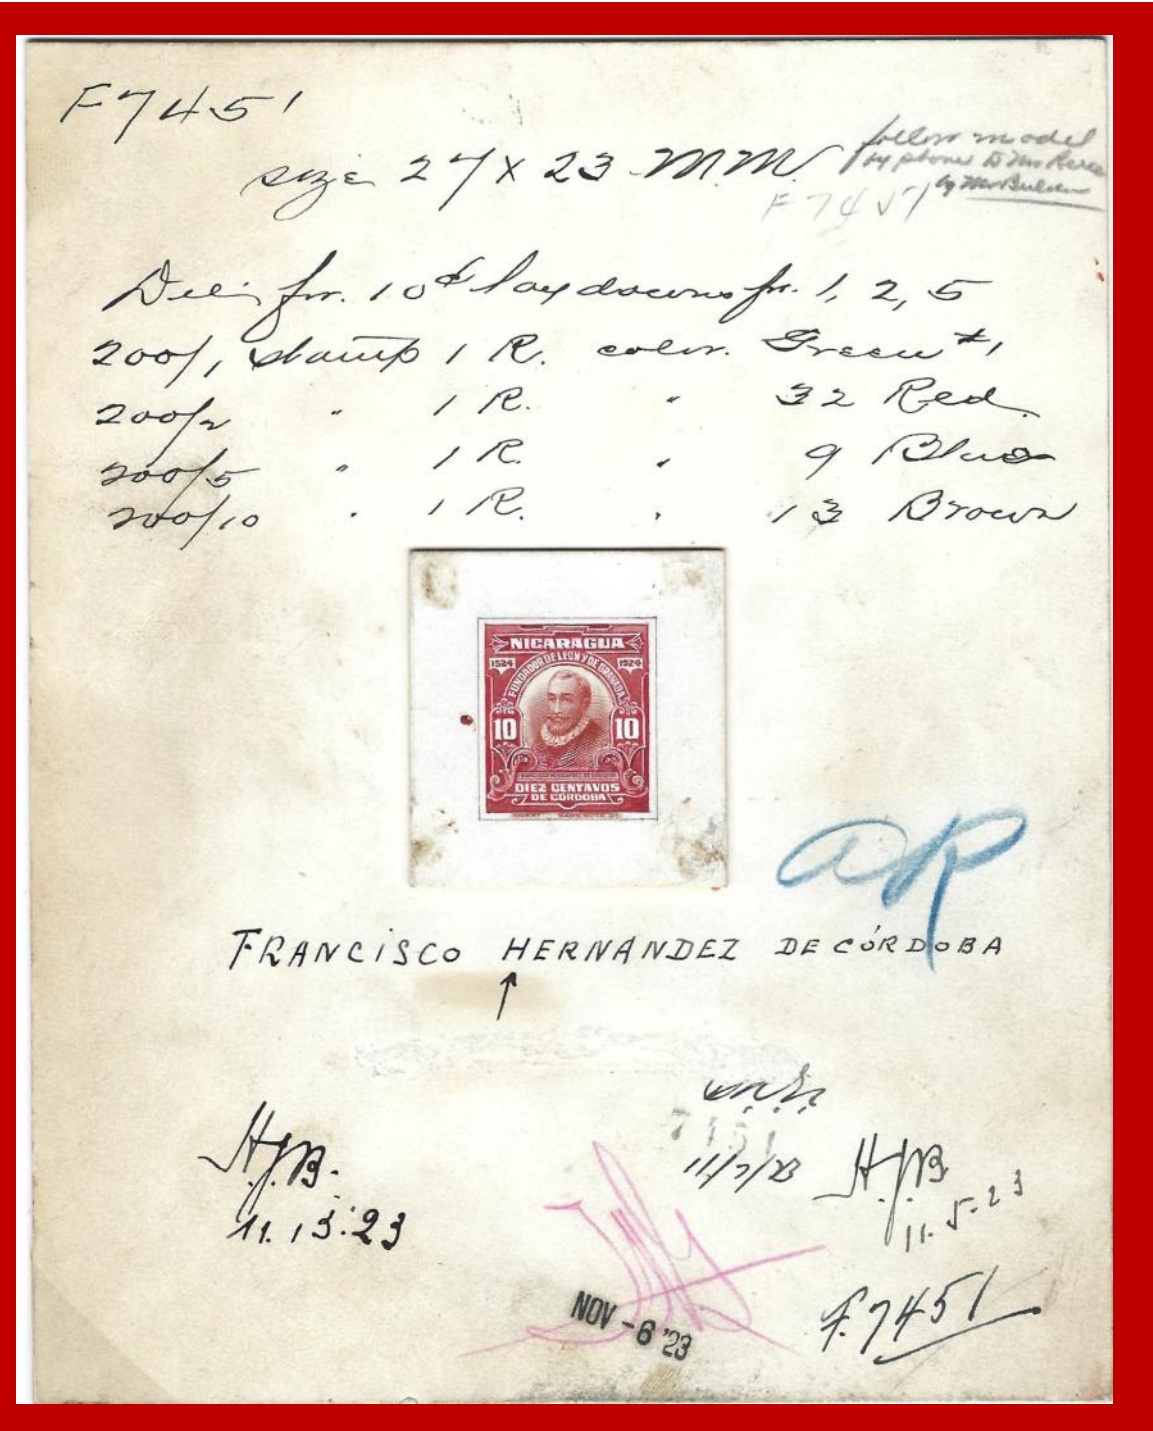 F7451
size 27 X 23 M.M.
follow model
by phone to Mr
by Mr
F7451
Die fr. 10¢ lay downs fr. 1, 2, 5
200/1 stamp 1 R. color. Green #1
200/2 " 1 R. " 32 Red.
200/5 " 1 R. " 9 Blue
200/10 " 1 R. " 13 Brown
NICARAGUA
1524 1924
FUNDADOR DE LEON Y DE GRANADA
10 10
FRANCISCO HERNANDEZ DE CORDOBA
DIEZ CENTAVOS
DE CÓRDOBA
AR
FRANCISCO HERNANDEZ DE CÓRDOBA
↑
H.J.B.
11.13.23
11/7/23
H.J.B.
11.5.23
NOV -6 '23
F.7451